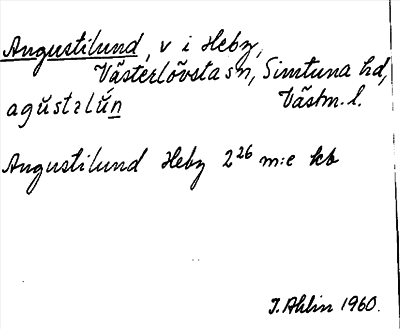 Augustilund, v i Heby,
Västerlövsta sn, Simtuna hd,
agŭstɩlŭn Västm. l.
Augustilund Heby 2²⁶ m:e kb
I. Ahlin 1960.